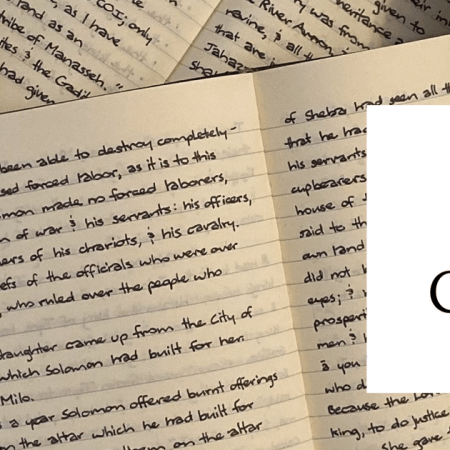 as I have
COI; only
land as an
tribe of Manasseh."
ites & the Gadit
had given
given to
inheritance
ry was from
River Arnon,
ravine, & all t
that are i
Jahaz
been able to destroy completely-
sed forced labor, as it is to this
mon made no forced laborers,
n of war & his servants: his officers,
ers of his chariots, & his cavalry.
efs of the officials who were over
, who ruled over the people who
daughter came up from the City of
which Solomon had built for her.
Milo.
s a year Solomon offered burnt offerings
n the altar which he had built for
on the altar
of Sheba had seen all t
that he had
his servants
cupbearers
house of
said to th
own land
did not
eyes; &
prosperi
men &
& you
who d
Because the Lor
king, to do justice
She gave
C